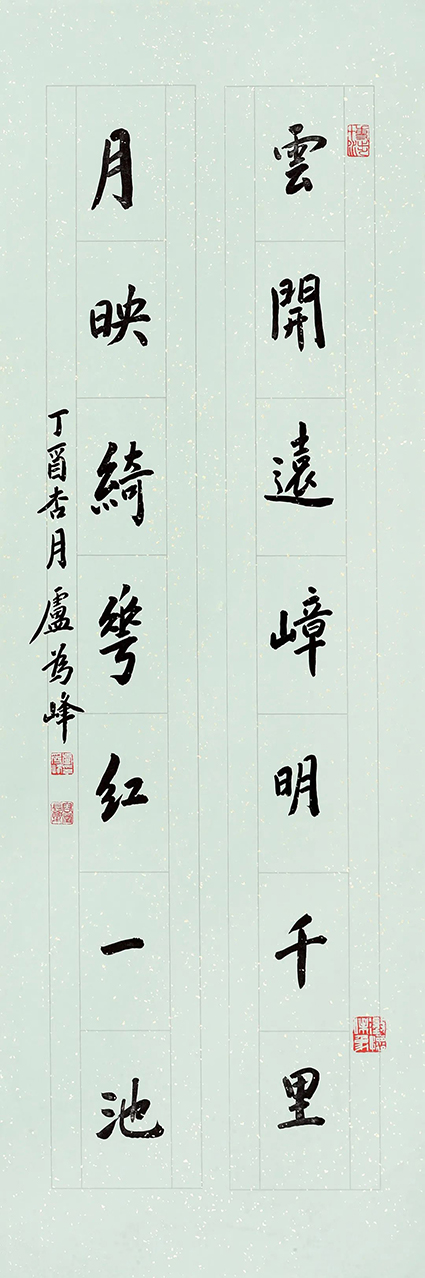 雲開遠嶂明千里
月映綺雩红一池
丁酉杏月盧為峰